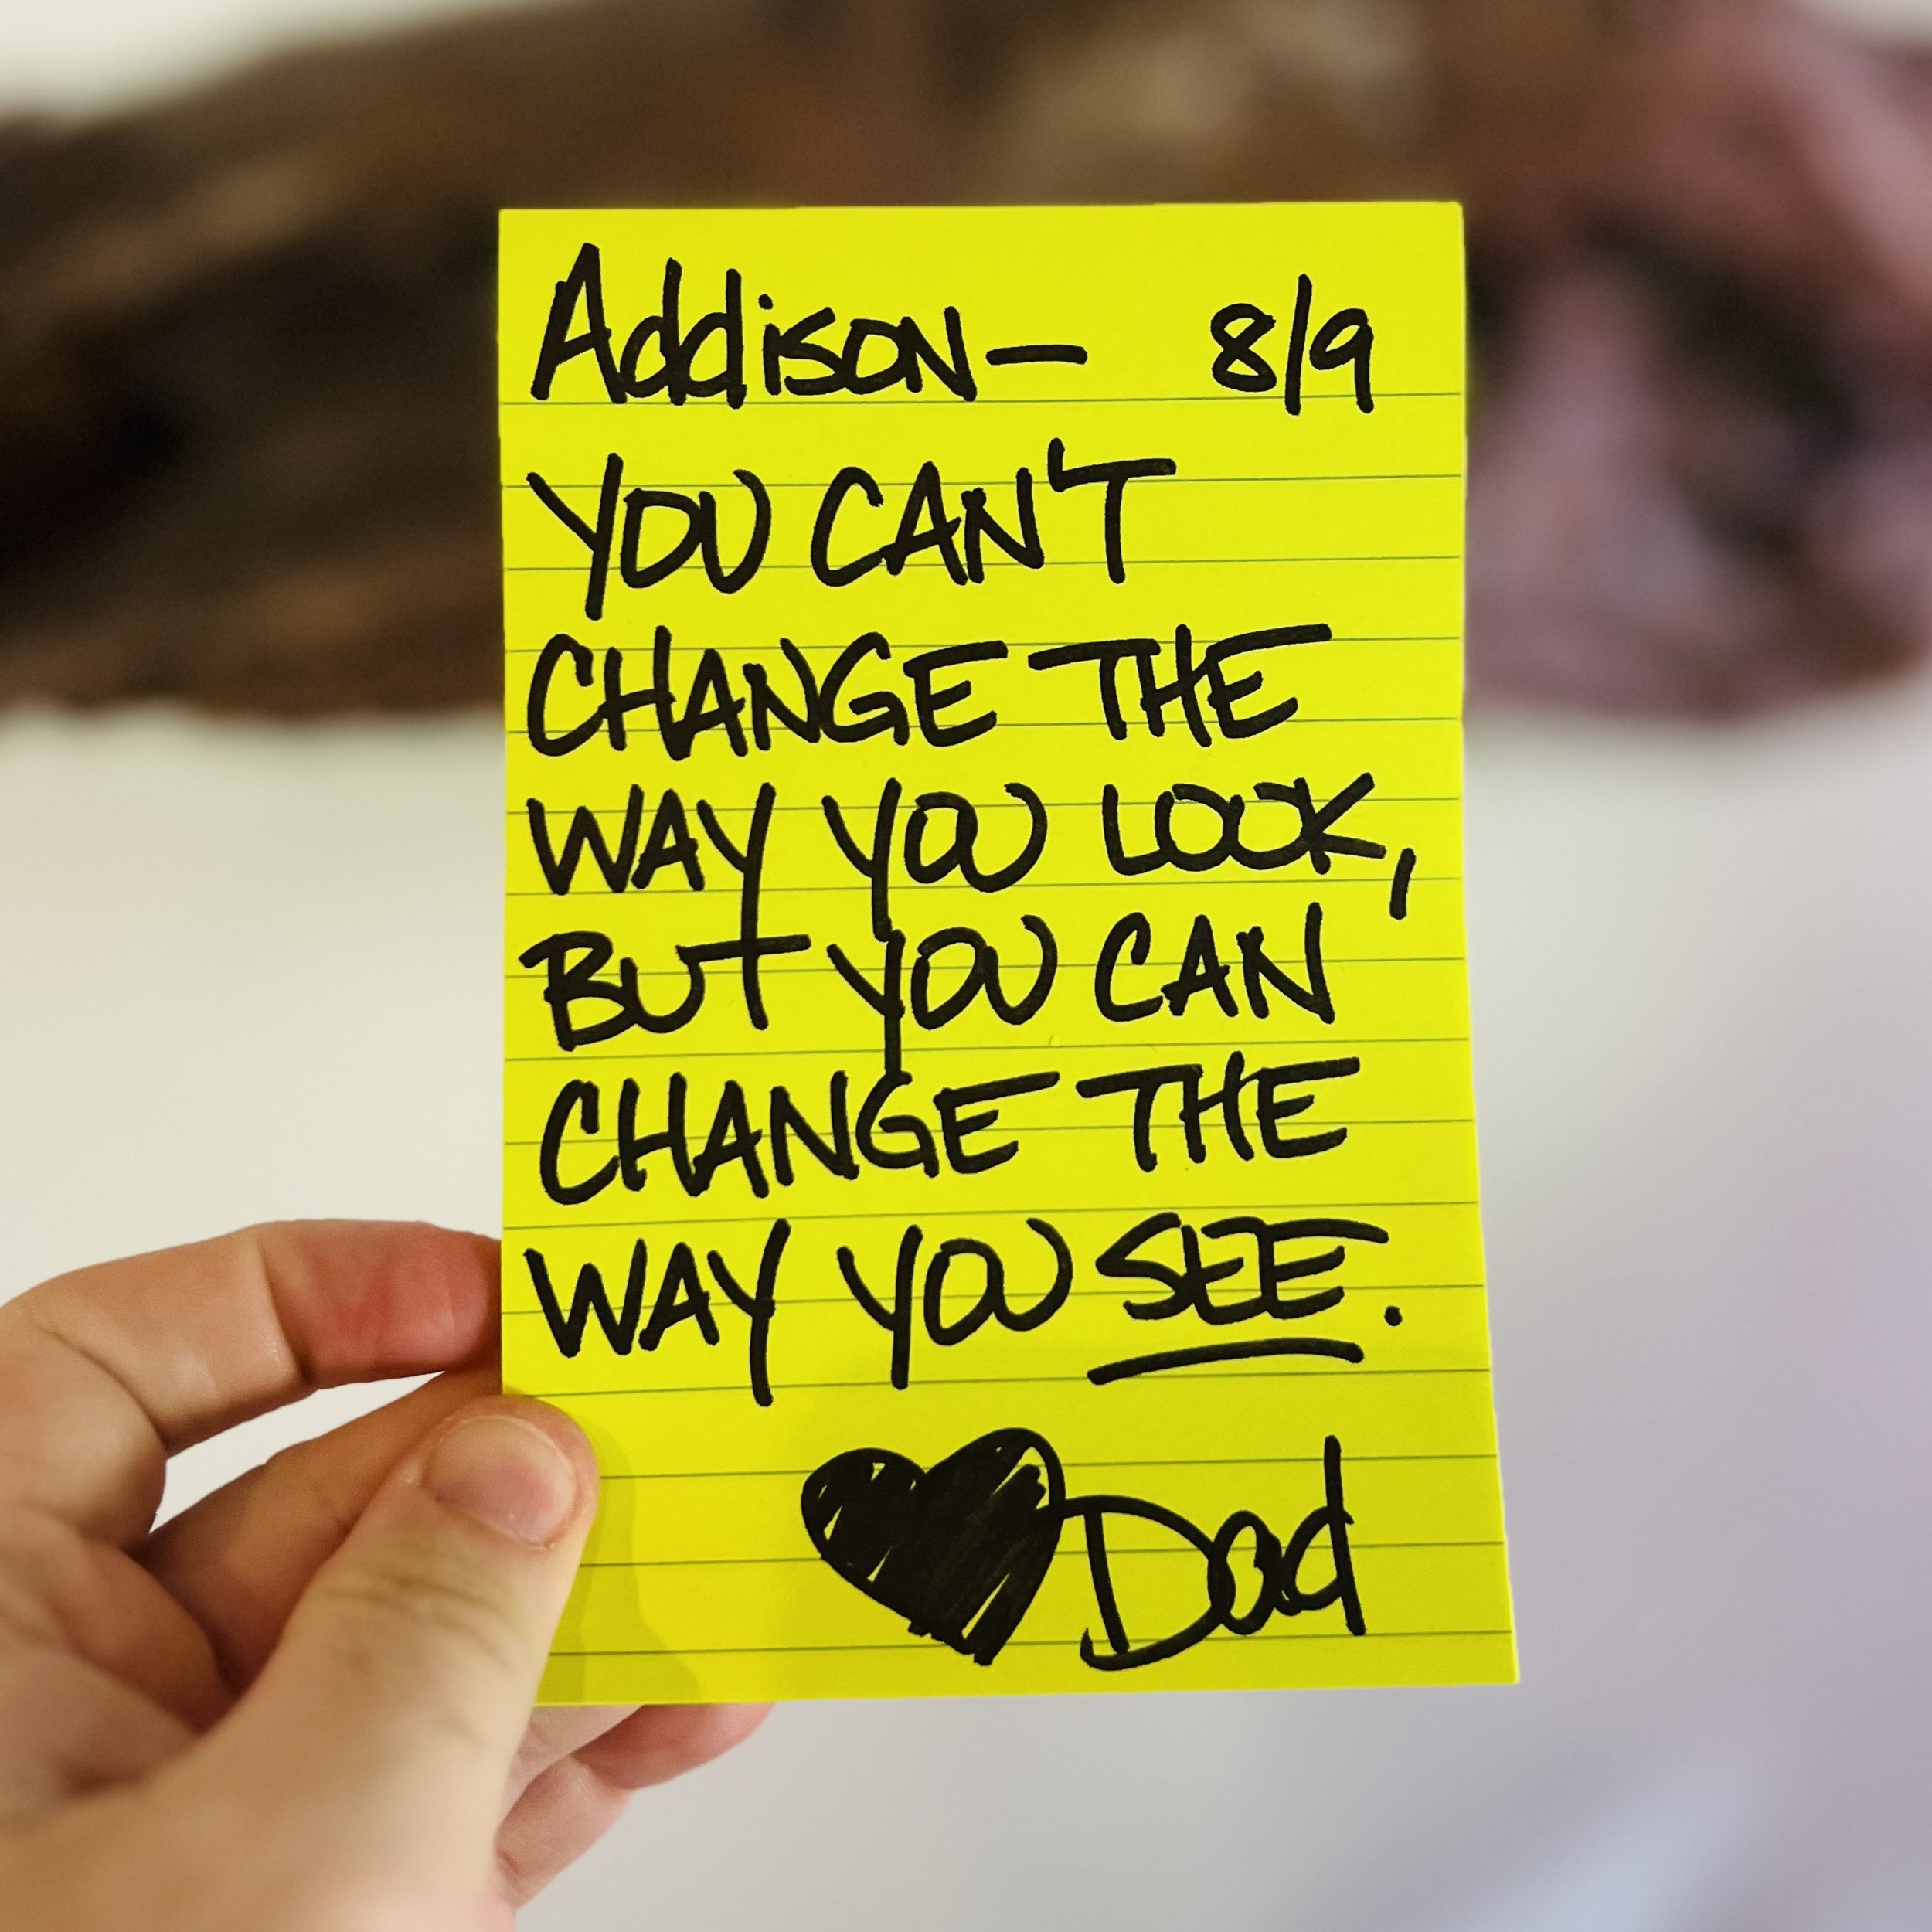 Addison— 8/9
YOU CAN'T
CHANGE THE
WAY YOU LOOK,
BUT YOU CAN
CHANGE THE
WAY YOU SEE.
Dad